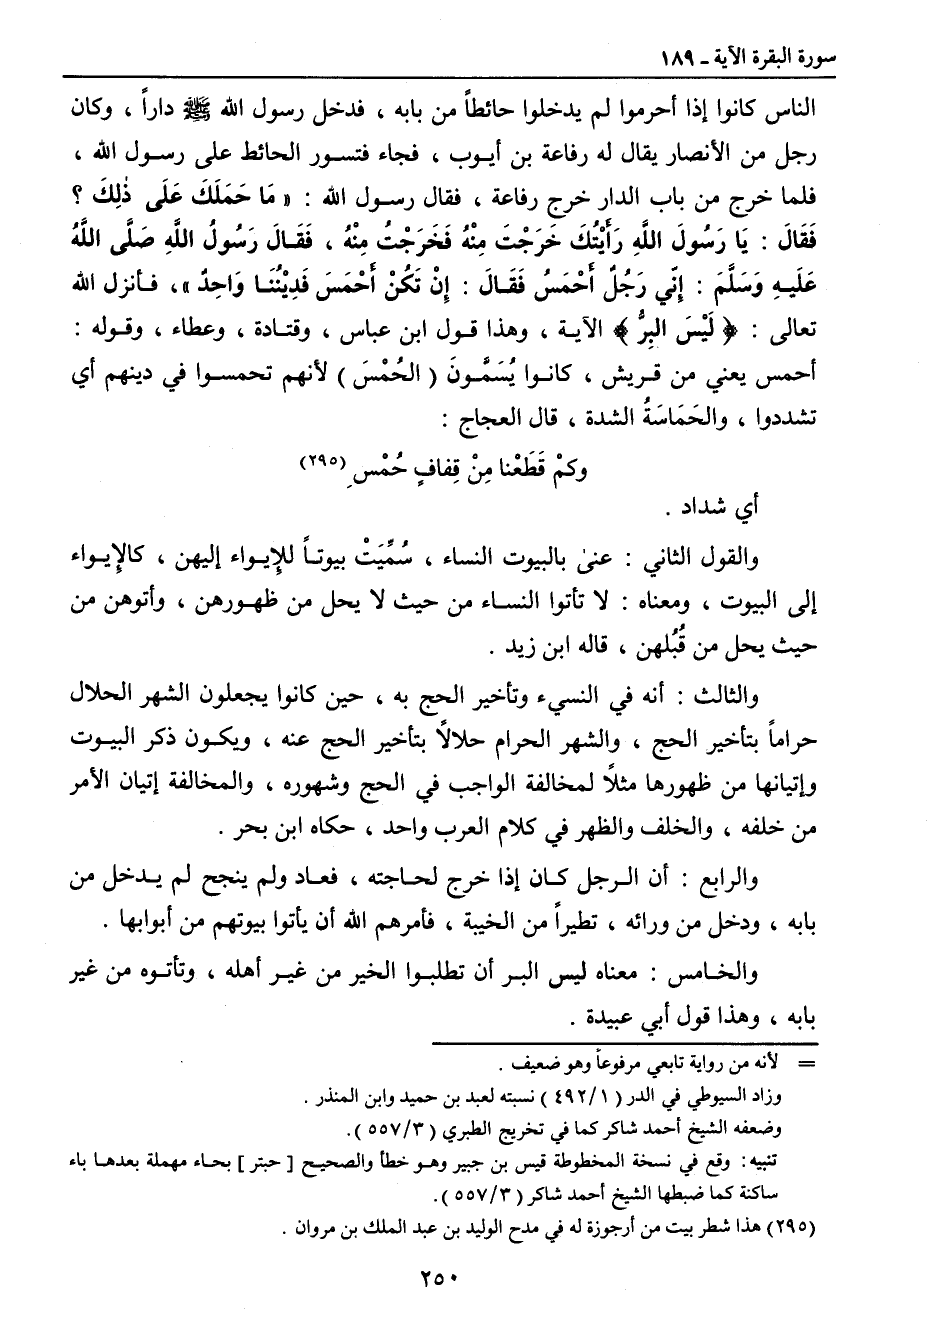 سورة البقرة الآية ـ ١٨٩
الناس كانوا إذا أحرموا لم يدخلوا حائطاً من بابه ، فدخل رسول الله ﷺ داراً ، وكان
رجل من الأنصار يقال له رفاعة بن أيوب ، فجاء فتسور الحائط على رسول الله ،
فلما خرج من باب الدار خرج رفاعة ، فقال رسول الله : « مَا حَمَلَكَ عَلَى ذٰلِكَ ؟
فَقَالَ : يَا رَسُولَ اللَّهِ رَأَيْتُكَ خَرَجْتَ مِنْهُ فَخَرَجْتُ مِنْهُ ، فَقَالَ رَسُولُ اللَّهِ صَلَّى اللَّهُ
عَلَيهِ وَسَلَّمَ : إنِّي رَجُلٌ أَحْمَسُ فَقَالَ : إنْ تَكُنْ أَحْمَسَ فَدِيْنُنَا وَاحِدٌ »، فأنزل الله
تعالى : ﴿ لَيْسَ البِرُّ ﴾ الآية ، وهذا قول ابن عباس ، وقتادة ، وعطاء ، وقوله :
أحمس يعني من قريش ، كانوا يُسَمَّونَ ( الحُمْسَ ) لأنهم تحمسوا في دينهم أي
تشددوا ، والحَمَاسَةُ الشدة ، قال العجاج :
وكمْ قَطَعْنا مِنْ قِفافٍ حُمْسِ (٢٩٥)
أي شداد .
والقول الثاني : عنىٰ بالبيوت النساء ، سُمِّيَتْ بيوتاً للإيواء إليهن ، كالإيواء
إلى البيوت ، ومعناه : لا تأتوا النساء من حيث لا يحل من ظهورهن ، وأتوهن من
حيث يحل من قُبُلهن ، قاله ابن زيد .
والثالث : أنه في النسيء وتأخير الحج به ، حين كانوا يجعلون الشهر الحلال
حراماً بتأخير الحج ، والشهر الحرام حلالاً بتأخير الحج عنه ، ويكون ذكر البيوت
وإتيانها من ظهورها مثلاً لمخالفة الواجب في الحج وشهوره ، والمخالفة إتيان الأمر
من خلفه ، والخلف والظهر في كلام العرب واحد ، حكاه ابن بحر .
والرابع : أن الرجل كان إذا خرج لحاجته ، فعاد ولم ينجح لم يدخل من
بابه ، ودخل من ورائه ، تطيراً من الخيبة ، فأمرهم الله أن يأتوا بيوتهم من أبوابها .
والخامس : معناه ليس البر أن تطلبوا الخير من غير أهله ، وتأتوه من غير
بابه ، وهذا قول أبي عبيدة .
= لأنه من رواية تابعي مرفوعاً وهو ضعيف .
وزاد السيوطي في الدر ( ٤٩٢/١ ) نسبته لعبد بن حميد وابن المنذر .
وضعفه الشيخ أحمد شاكر كما في تخريج الطبري ( ٥٥٧/٣ ).
تنبيه : وقع في نسخة المخطوطة قيس بن جبير وهو خطأ والصحيح [ حبتر ] بحاء مهملة بعدها باء
ساكنة كما ضبطها الشيخ أحمد شاكر ( ٥٥٧/٣ ).
(٢٩٥) هذا شطر بيت من أرجوزة له في مدح الوليد بن عبد الملك بن مروان .
٢٥٠